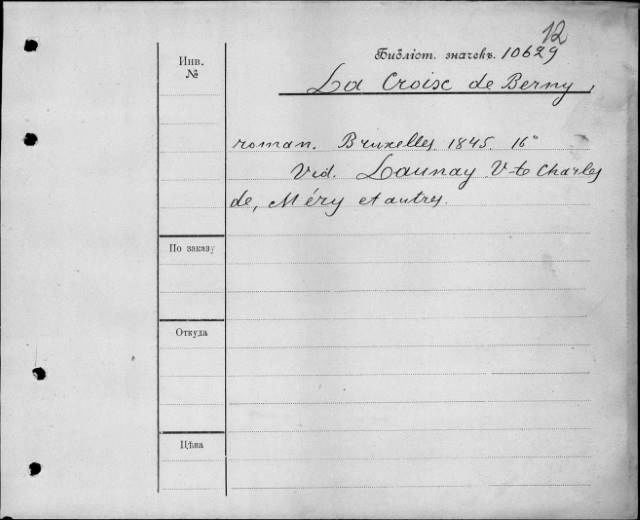 12
Инв.
№
Библіот. значекъ. 10629
La Croix de Berny,
roman. Bruxelles. 1845. 16°
Vid. Launay V-te Charles
de, Méry et autres.
По заказу
Откуда
Цѣна